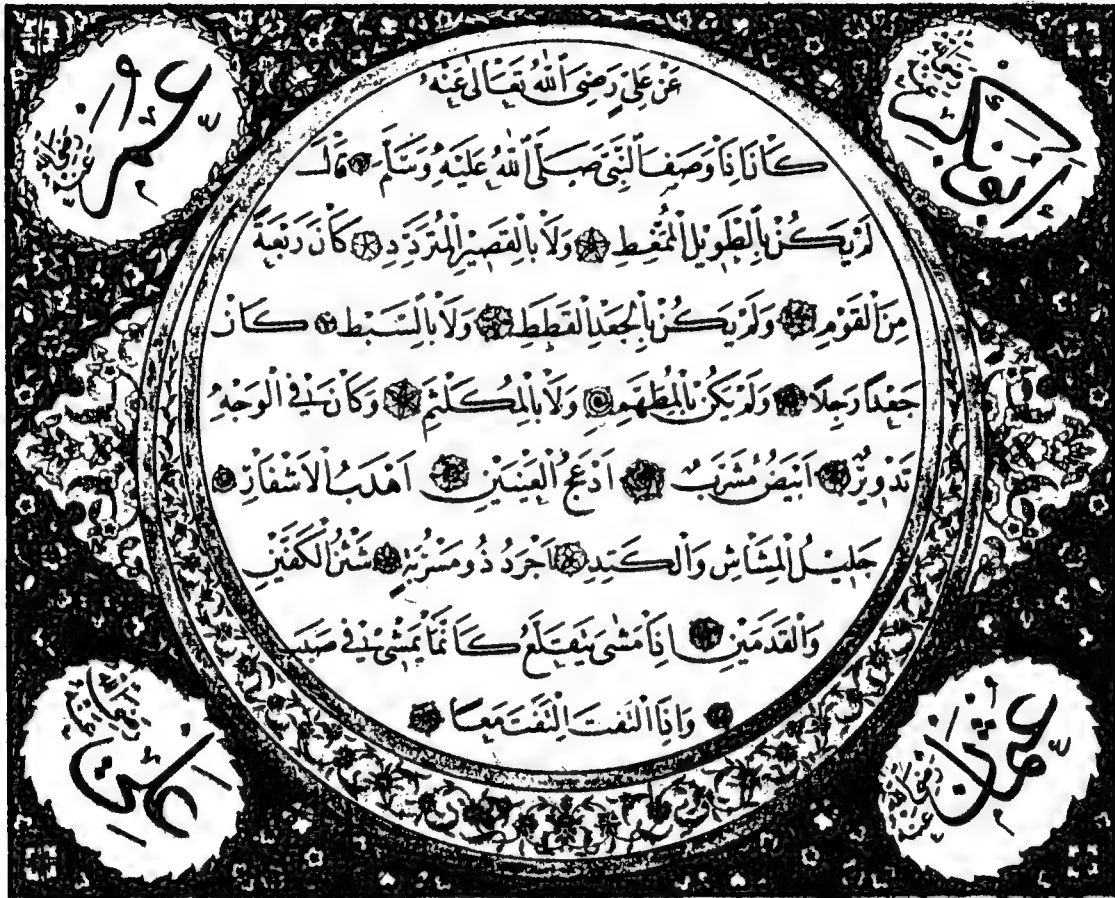 عَنْ عَلِيٍّ رَضِيَ ٱللّٰهُ تَعَالٰى عَنْهُ
كَانَ إِذَا وَصَفَ ٱلنَّبِيَّ صَلَّى ٱللّٰهُ عَلَيْهِ وَسَلَّمَ قَالَ
لَمْ يَكُنْ بِٱلطَّوِيلِ ٱلْمُمَغَّطِ وَلَا بِالْقَصِيرِ ٱلْمُتَرَدِّدِ كَانَ رَبْعَةً
مِنَ ٱلْقَوْمِ وَلَمْ يَكُنْ بِالْجَعْدِ ٱلْقَطَطِ وَلَا بِالسَّبْطِ كَانَ
جَعْدًا رَجِلًا وَلَمْ يَكُنْ بِالْمُطَهَّمِ وَلَا بِالْمُكَلْثَمِ وَكَانَ فِي الْوَجْهِ
تَدْوِيرٌ أَبْيَضُ مُشْرَبٌ أَدْعَجُ الْعَيْنَيْنِ أَهْدَبُ الْأَشْفَارِ
جَلِيلُ الْمُشَاشِ وَالْكَتَدِ أَجْرَدُ ذُو مَسْرُبَةٍ شَثْنُ الْكَفَّيْنِ
وَالْقَدَمَيْنِ إِذَا مَشٰى يَتَقَلَّعُ كَأَنَّمَا يَمْشِي فِي صَبَبٍ
وَإِذَا الْتَفَتَ الْتَفَتَ مَعًا
ابو بكر
عمر
عثمان
علي